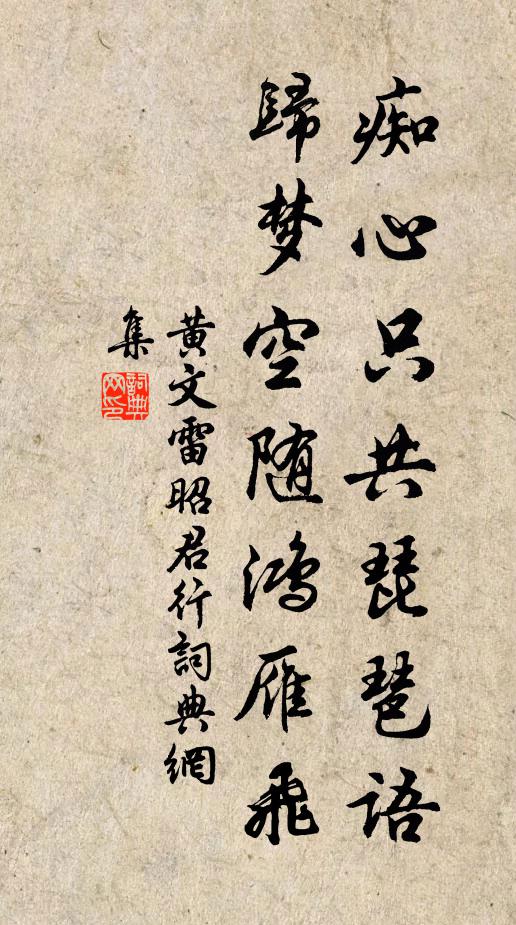 痴心只共琵琶语
歸梦空随鸿雁飛
黄文雷昭君行詞典網
集
詞典
网印